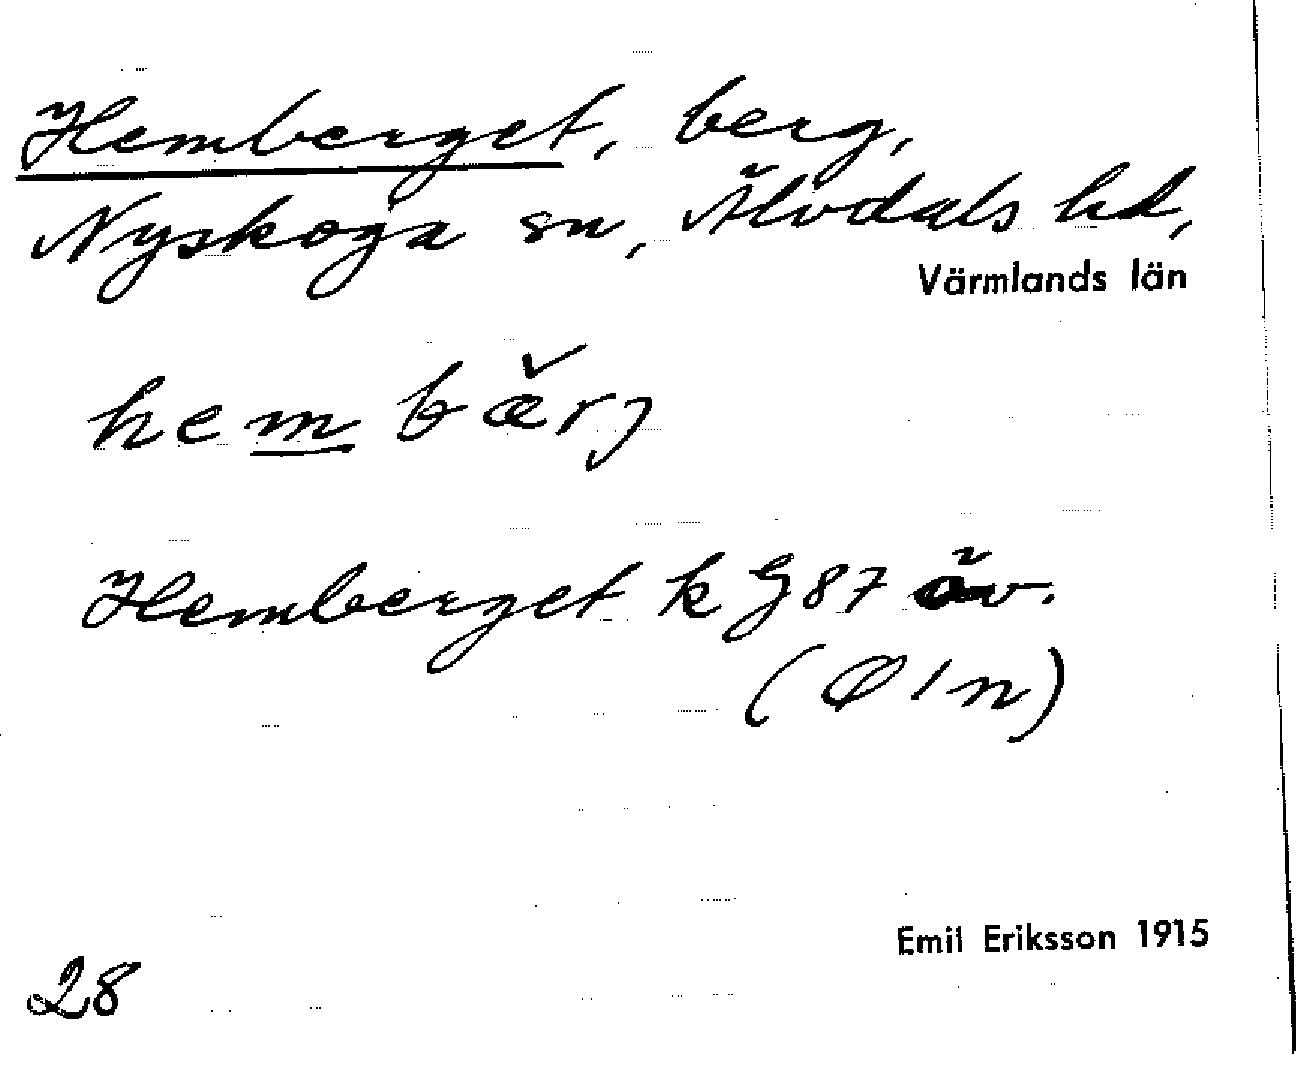 Hemberget, berg,
Nyskoga sn, Älvdals hd,
Värmlands län
hembærj
Hemberget k G87 äv.
(Ø1n)
Emil Eriksson 1915
28